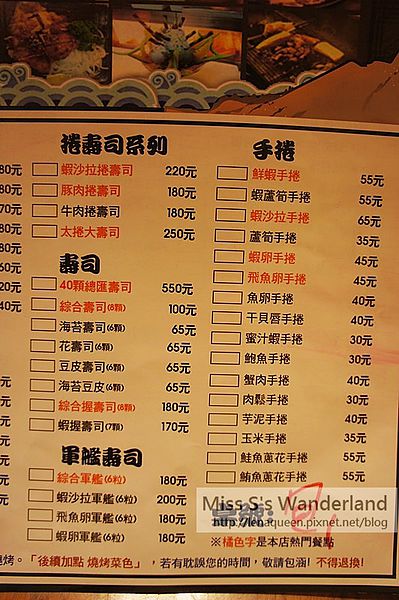 捲壽司系列
蝦沙拉捲壽司 220元
豚肉捲壽司 180元
牛肉捲壽司 180元
太捲大壽司 250元
壽司
40顆總匯壽司 550元
綜合壽司(8顆) 100元
海苔壽司(6顆) 65元
花壽司(6顆) 65元
豆皮壽司(6顆) 65元
海苔豆皮(6顆) 65元
綜合握壽司(8顆) 180元
蝦握壽司(7顆) 170元
軍艦壽司
綜合軍艦(6粒) 180元
蝦沙拉軍艦(6粒) 200元
飛魚卵軍艦(6粒) 180元
蝦卵軍艦(6粒) 180元
手捲
鮮蝦手捲 55元
蝦蘆筍手捲 55元
蝦沙拉手捲 65元
蘆筍手捲 35元
蝦卵手捲 45元
飛魚卵手捲 45元
魚卵手捲 40元
干貝唇手捲 40元
蜜汁蝦手捲 30元
鮑魚手捲 30元
蟹肉手捲 40元
肉鬆手捲 30元
芋泥手捲 40元
玉米手捲 35元
鮭魚蔥花手捲 55元
鮪魚蔥花手捲 55元
Miss S's Wanderland
http://lenaqueen.pixnet.net/blog
※橘色字是本店熱門餐點
燒烤。「後續加點 燒烤菜色」，若有耽誤您的時間，敬請包涵! 不得退換!